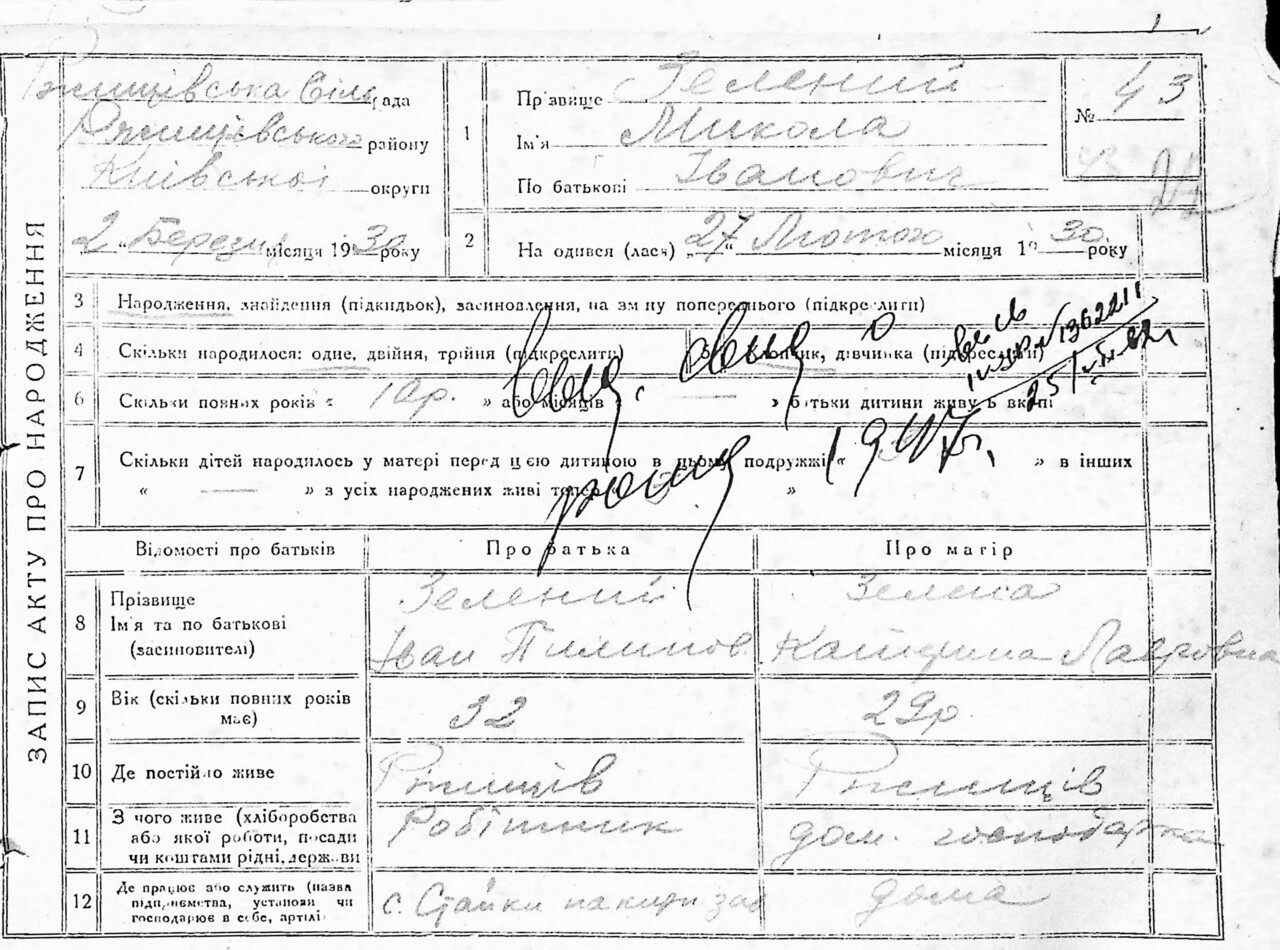 ЗАПИС АКТУ ПРО НАРОДЖЕННЯ
Ржищівська Сіль рада
Ржищівського району
Київської округи
„2“ Березня місяця 1930 року
1
Пр'звище Зелений
Ім'я Микола
По батькові Іванович
№ 43
2
На одився (лася) „27“ Лютого місяця 1930 року
3 Народження, знайдення (підкидьок), засиновлення, на зм ну попереднього (підкреслити)
4 Скільки народилося: одне, двійня, трійня (підкреслити)
дівчинка (підкреслити)
6 Скільки повних років « 10р. » або місяців » б тьки дитини живу ь вкупі
7 Скільки дітей народилось у матері перед цією дитиною в цьому подружжі « » в інших
« — » з усіх народжених живі тепер « »
1947г.
№1362211
Відомості про батьків Про батька Про матір
8 Прізвище
Ім'я та по батькові
(засиновителі)
Зелений
Іван Пилипов
Зелена
Катерина Лавровна
9 Вік (скільки повних років має) 32 29р
10 Де постійно живе Ржищів Ржищів
11 З чого живе (хліборобства
або якої роботи, посади
чи коштами рідні, держави
Робітник
дом. господарка
12 Де працює або служить (назва
підприємства, установи чи
господарює в себе, артілі
с. Стайки
дома